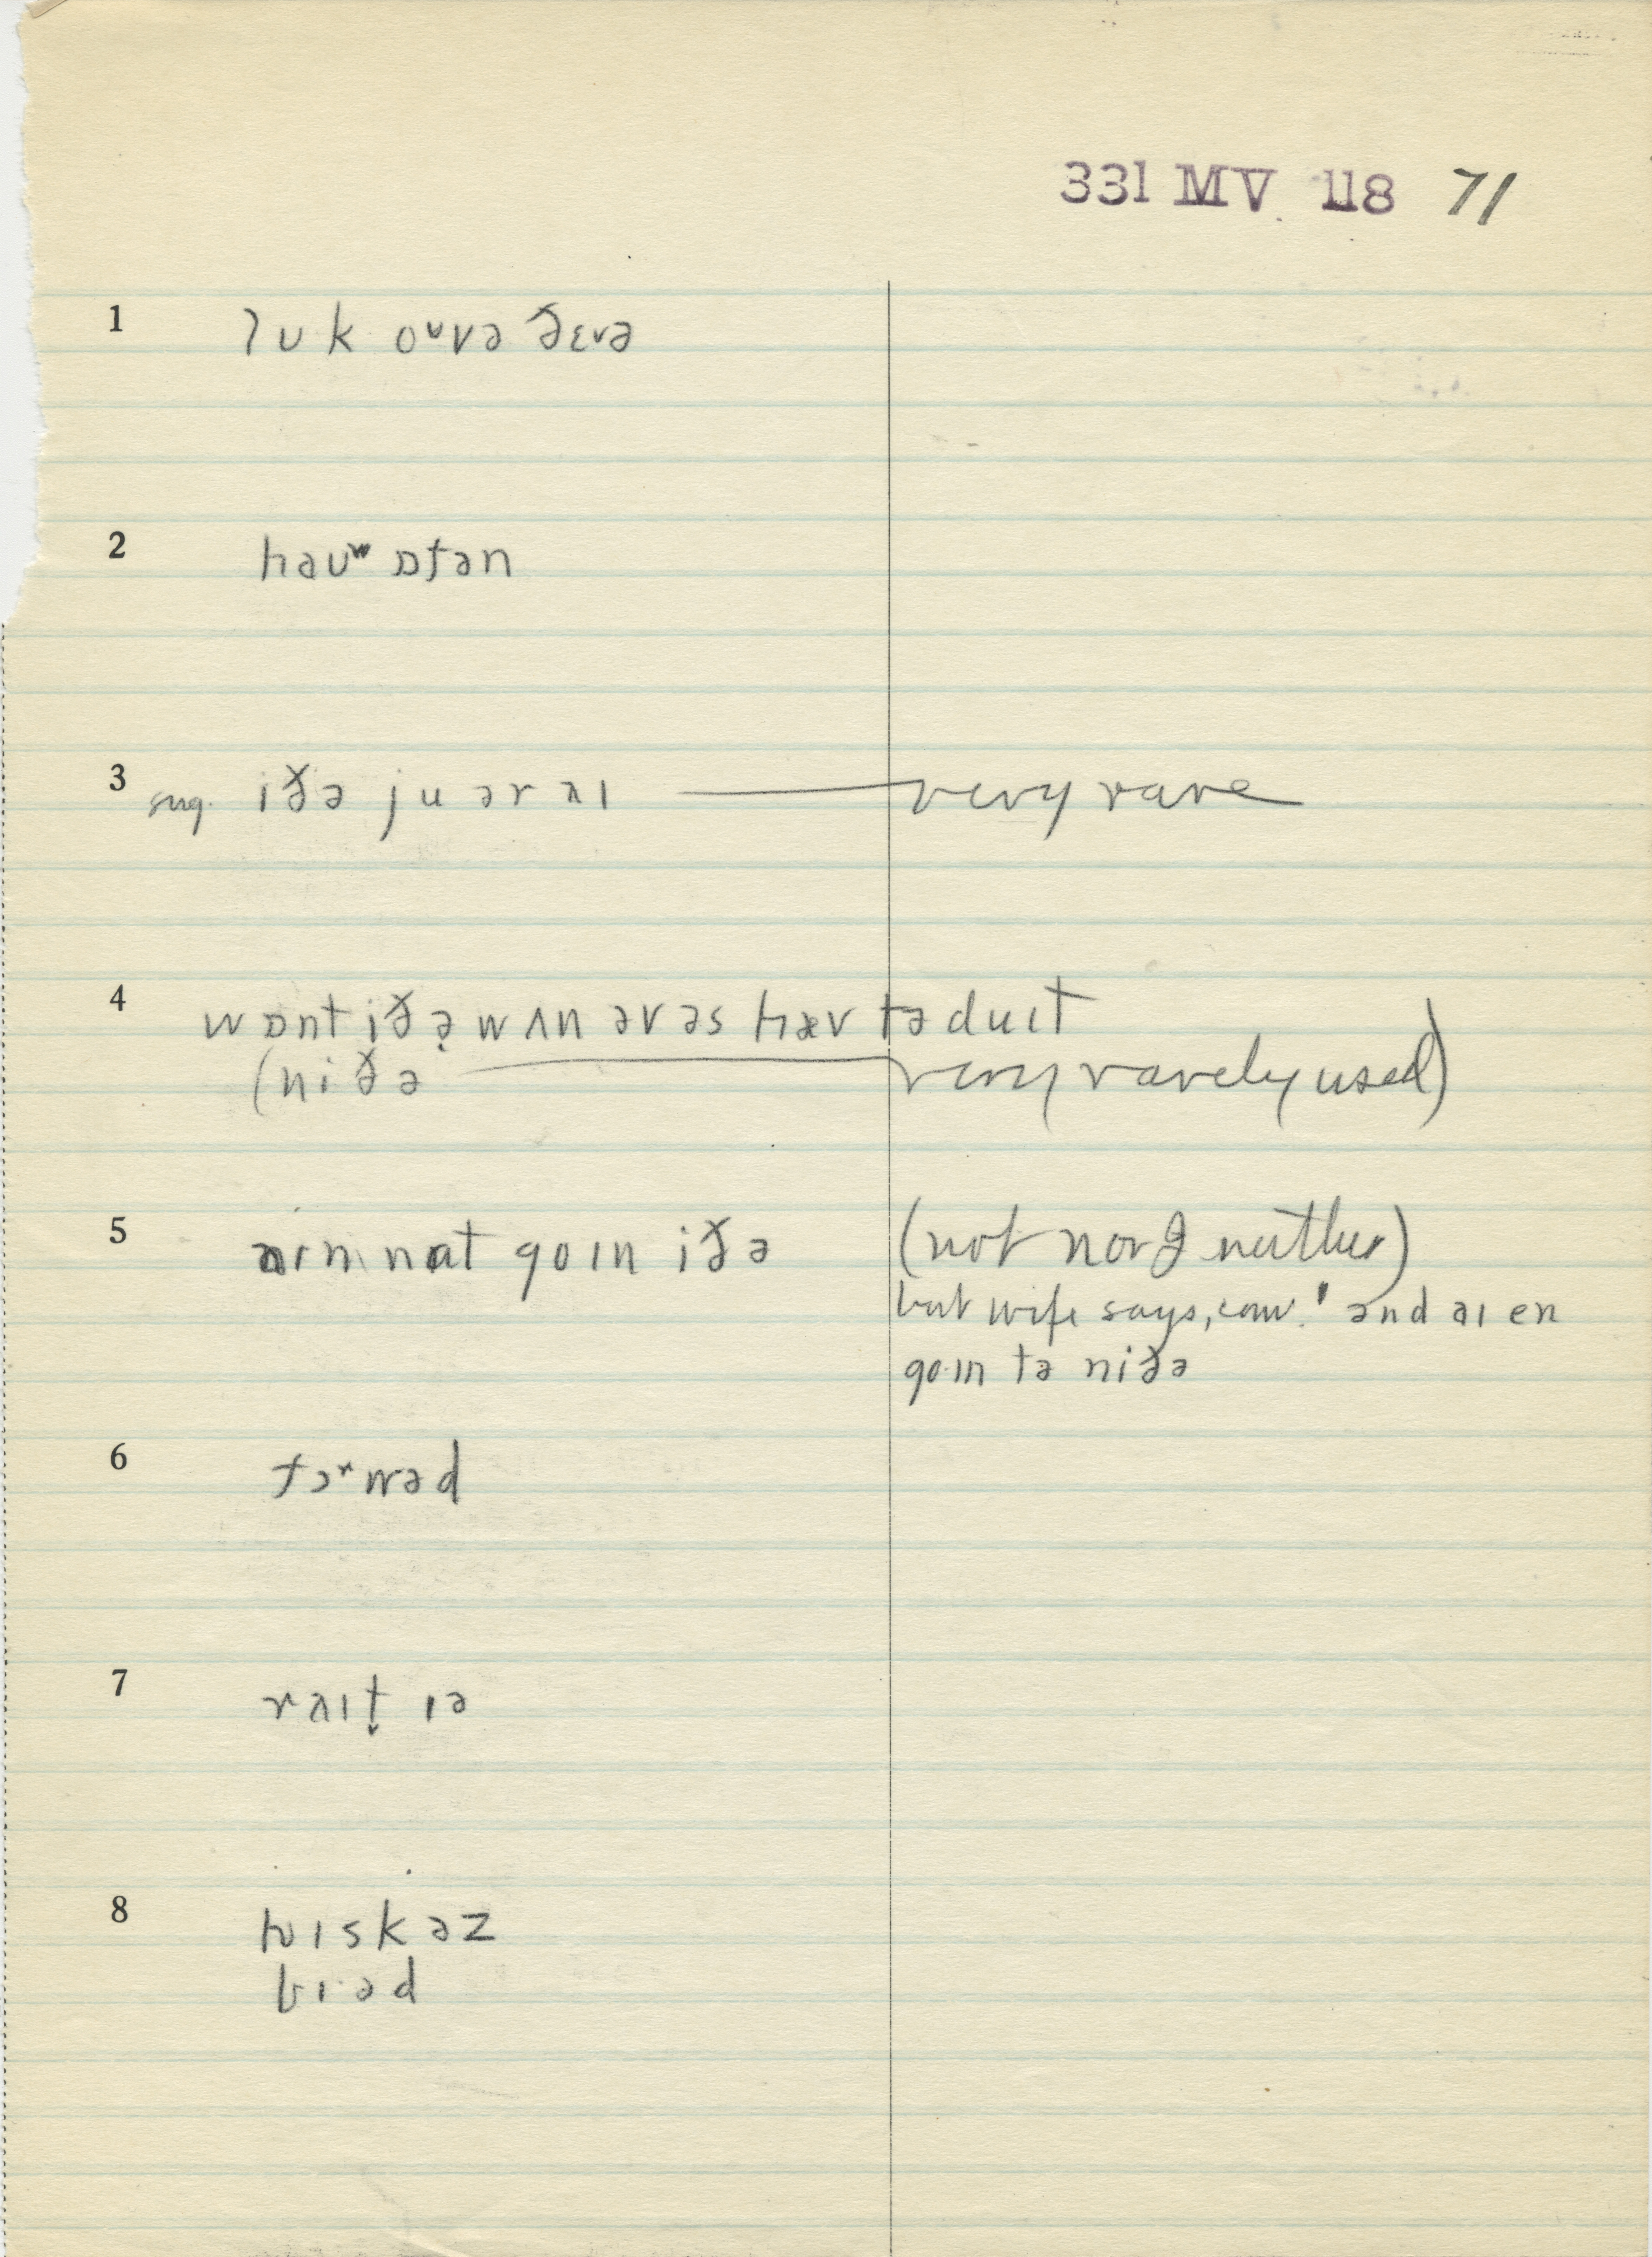 331 MV 118 71
1 lʊk oᵘvə ðɛvə
2 haʊʷ ɒfən
3 sug. iðə ju ər ʌɪ — very rare
4 wɒnt iðə̣ wʌn əv əs hæv tə duɪt
(niðə — very rarely used)
5 aɪm nat goɪn iðə (not nor I neither)
but wife says, conv. and aɪ en
go·ɪn tə niðə
6 fɔʳwəd
7 rʌɪt̬ ɪə
8 hwɪskəz
bɪ·əd